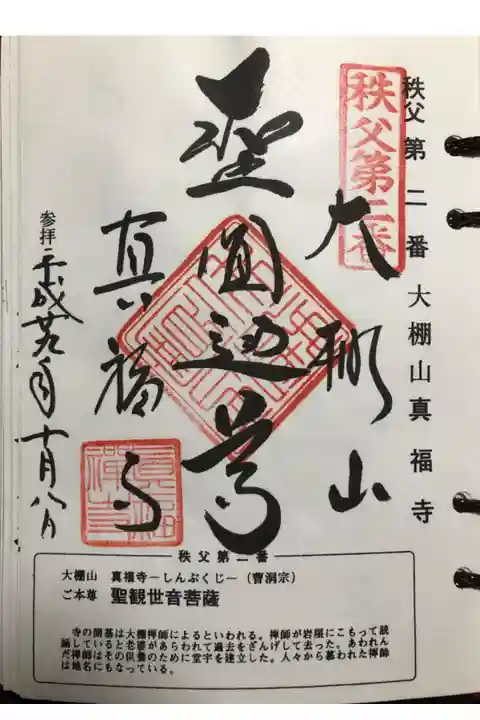 秩父第二番 大棚山真福寺
秩父第二番
大棚山
聖圓通尊
真福寺
参拝 平成廿九年十月八日
秩父第二番
大棚山 真福寺−しんぷくじ−（曹洞宗）
ご本尊 聖観世音菩薩
寺の開基は大棚禅師によるといわれる。禅師が岩屋にこもって読
誦していると老婆があらわれて過去をざんげして去った。あわれん
だ禅師はその供養のために堂宇を建立した。人々から慕われた禅師
は地名にもなっている。